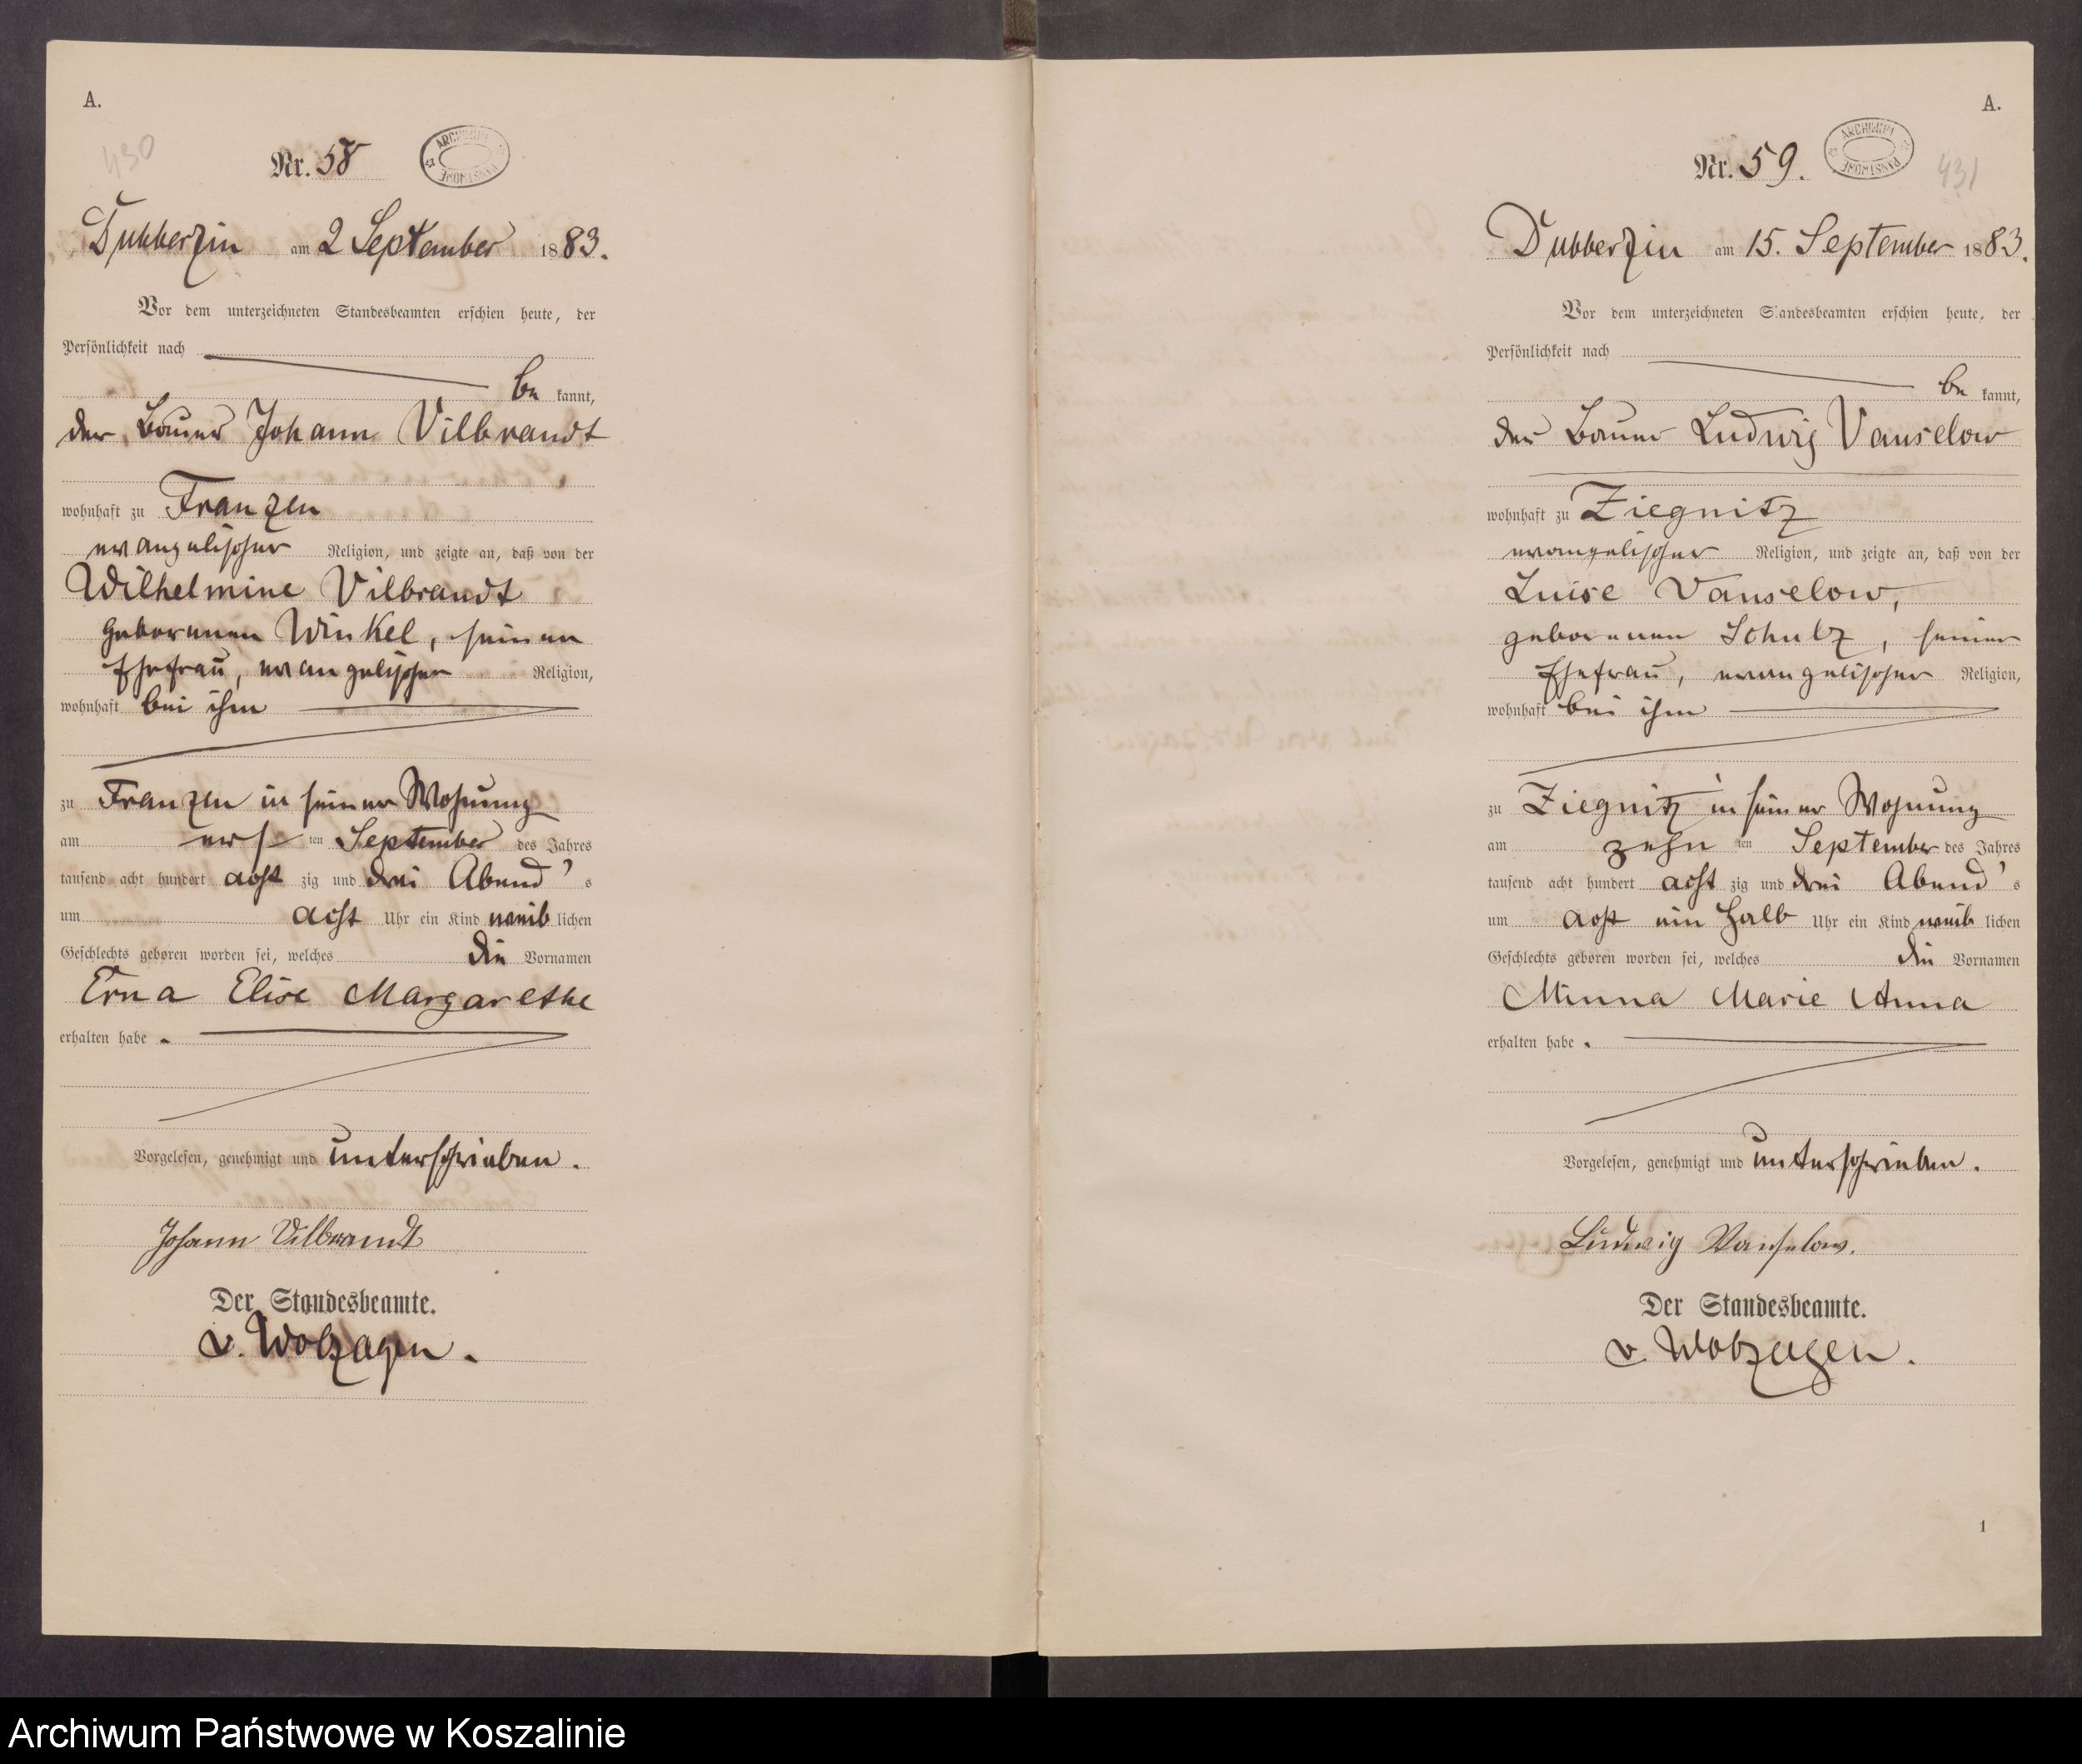 A.
430
Nr. 58
ARCHIWUM PAŃSTWOWE
Dubberzin am 2 September 1883.
Vor dem unterzeichneten Standesbeamten erschien heute, der
Persönlichkeit nach
be kannt,
der Bauer Johann Vilbrandt
wohnhaft zu Franzen
evangelischer Religion, und zeigte an, daß von der
Wilhelmine Vilbrandt
geborenen Winkel, seiner
Ehefrau, evangelischer Religion,
wohnhaft bei ihm
zu Franzen in seiner Wohnung
am ersten September des Jahres
tausend acht hundert acht zig und drei Abend's
um acht Uhr ein Kind weib lichen
Geschlechts geboren worden sei, welches die Vornamen
Erna Elise Margarethe
erhalten habe.
Vorgelesen, genehmigt und unterschrieben.
Johann Vilbrandt
Der Standesbeamte.
v. Wolzogen.
A.
Nr. 59.
ARCHIWUM PAŃSTWOWE
431
Dubberzin am 15. September 1883.
Vor dem unterzeichneten Standesbeamten erschien heute, der
Persönlichkeit nach
be kannt,
der Bauer Ludwig Vanselow
wohnhaft zu Ziegnitz
evangelischer Religion, und zeigte an, daß von der
Luise Vanselow,
geborenen Schulz, seiner
Ehefrau, evangelischer Religion,
wohnhaft bei ihm
zu Ziegnitz in seiner Wohnung
am zehn ten September des Jahres
tausend acht hundert acht zig und drei Abend's
um acht ein halb Uhr ein Kind weib lichen
Geschlechts geboren worden sei, welches die Vornamen
Minna Marie Anna
erhalten habe.
Vorgelesen, genehmigt und unterschrieben.
Ludwig Vanselow.
Der Standesbeamte.
v. Wolzogen.
1
Archiwum Państwowe w Koszalinie